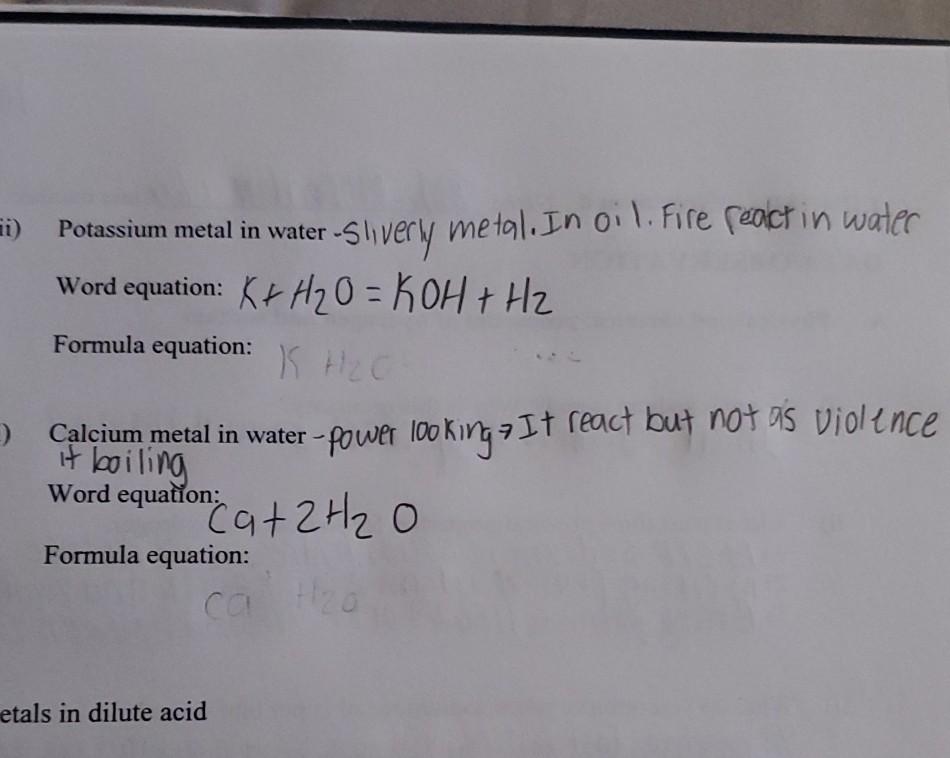 ii) Potassium metal in water -Sliverly metal. In oil. Fire react in water
Word equation: K + H2O = KOH + H2
Formula equation:
K H2O
) Calcium metal in water - power looking → It react but not as violence
it boiling
Word equation:
Ca + 2H2O
Formula equation:
Ca H2O
etals in dilute acid